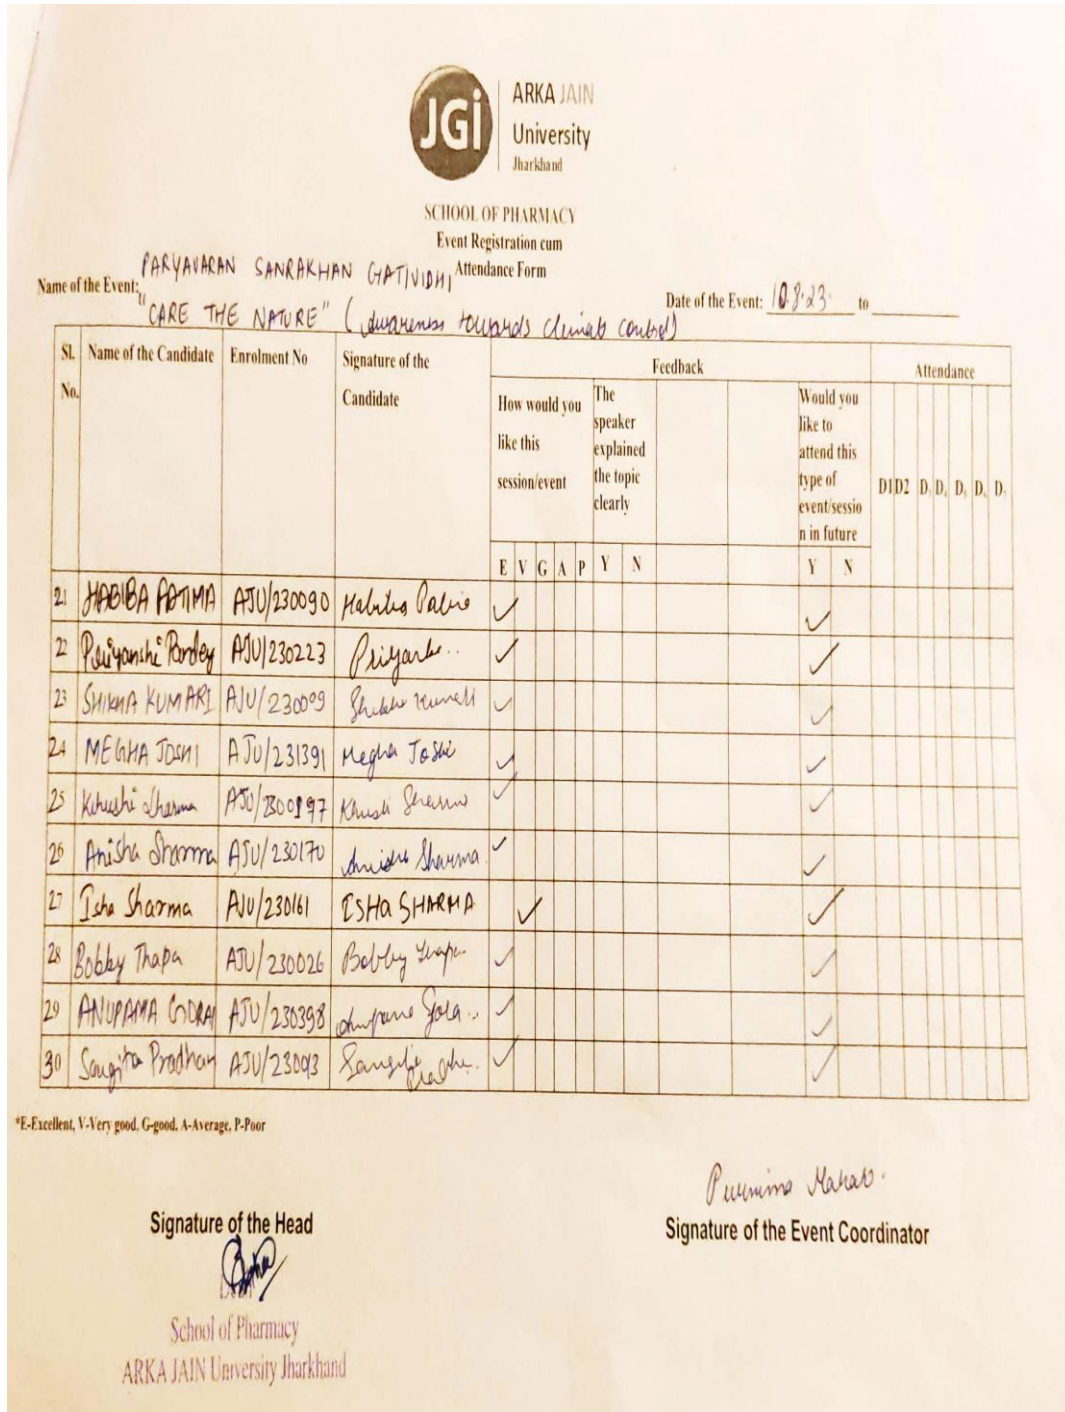 JGi
ARKA JAIN
University
Jharkhand
SCHOOL OF PHARMACY
Event Registration cum
Attendance Form
Name of the Event: PARYAVARAN SANRAKHAN GATIVIDHI
"CARE THE NATURE" (Awareness towards climate control)
Date of the Event: 10.8.23 to
Sl. No. Name of the Candidate Enrolment No Signature of the Candidate Feedback Attendance
How would you like this session/event The speaker explained the topic clearly Would you like to attend this type of event/session in future D1 D2 D3 D4 D5 D6 D7
E V G A P Y N Y N
21 HABIBA FATIMA AJU/230090 Habiba
22 Priyanshi Pandey AJU/230223
23 SHIKHA KUMARI AJU/230009 Shikha Kumari
24 MEGHA JOSHI AJU/231391 Megha Joshi
25 Khushi Sharma Khushi Sharma
26 Anisha Sharma AJU/230170 Anisha Sharma
27 Isha Sharma AJU/230161 ISHa SHARMA
28 Bobby Thapa AJU/230026 Bobby Thapa
29 ANUPAMA GORAI AJU/230398
30 Sangita Pradhan AJU/23093
*E-Excellent, V-Very good, G-good, A-Average, P-Poor
Purnima Mahato
Signature of the Head
Signature of the Event Coordinator
School of Pharmacy
ARKA JAIN University Jharkhand